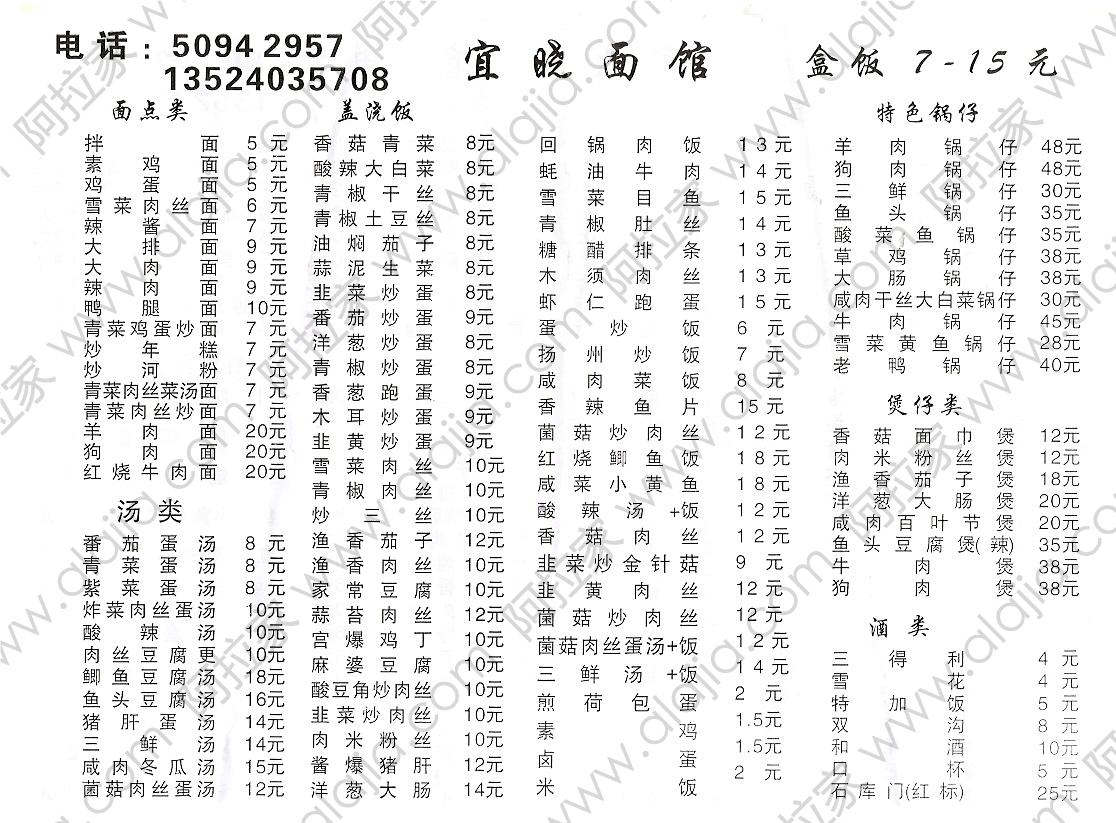 电话：5094 2957
13524035708
宜晓面馆
盒饭 7-15元
面点类
拌面 5元
素鸡面 5元
鸡蛋面 5元
雪菜肉丝面 6元
辣酱面 7元
大排面 9元
大肉面 9元
辣肉面 9元
鸭腿面 10元
青菜鸡蛋炒面 7元
炒年糕 7元
炒河粉 7元
青菜肉丝菜汤面 7元
青菜肉丝炒面 7元
羊肉面 20元
狗肉面 20元
红烧牛肉面 20元
汤类
番茄蛋汤 8元
青菜蛋汤 8元
紫菜蛋汤 8元
炸菜肉丝蛋汤 10元
酸辣汤 10元
肉丝豆腐更 10元
鲫鱼豆腐汤 18元
鱼头豆腐汤 16元
猪肝蛋汤 14元
三鲜汤 14元
咸肉冬瓜汤 15元
菌菇肉丝蛋汤 12元
盖浇饭
香菇青菜 8元
酸辣大白菜 8元
青椒干丝 8元
青椒土豆丝 8元
油焖茄子 8元
蒜泥生菜 8元
韭菜炒蛋 8元
番茄炒蛋 9元
洋葱炒蛋 9元
青椒炒蛋 8元
香葱跑蛋 9元
木耳炒蛋 9元
韭黄炒蛋 9元
雪菜肉丝 10元
青椒肉丝 10元
炒三丝 10元
渔香茄子 12元
渔香肉丝 10元
家常豆腐 10元
蒜苔肉丝 12元
宫爆鸡丁 10元
麻婆豆腐 10元
酸豆角炒肉丝 10元
韭菜炒肉丝 10元
肉米粉丝 10元
酱爆猪肝 12元
洋葱大肠 14元
回锅肉饭 13元
蚝油牛肉 14元
雪菜目鱼 15元
青椒肚丝 14元
糖醋排条 13元
木须肉丝 13元
虾仁跑蛋 15元
蛋炒饭 6元
扬州炒饭 7元
咸肉菜饭 8元
香辣鱼片 15元
菌菇炒肉丝 12元
红烧鲫鱼饭 18元
咸菜小黄鱼 18元
酸辣汤+饭 12元
香菇肉丝 12元
韭菜炒金针菇 9元
韭黄肉丝 12元
菌菇炒肉丝 12元
菌菇肉丝蛋汤+饭 12元
三鲜汤+饭 14元
煎荷包蛋 2元
素鸡 1.5元
卤蛋 1.5元
米饭 2元
特色锅仔
羊肉锅仔 48元
狗肉锅仔 48元
三鲜锅仔 30元
鱼头锅仔 35元
酸菜鱼锅仔 35元
草鸡锅仔 38元
大肠锅仔 38元
咸肉干丝大白菜锅仔 30元
牛肉锅仔 45元
雪菜黄鱼锅仔 28元
老鸭锅仔 40元
煲仔类
香菇面巾煲 12元
肉米粉丝煲 12元
渔香茄子煲 18元
洋葱大肠煲 20元
咸肉百叶节煲 20元
鱼头豆腐煲(辣) 35元
牛肉煲 38元
狗肉煲 38元
酒类
三得利 4元
雪花 4元
特加饭 5元
双沟 8元
和酒 10元
口杯 5元
石库门(红标) 25元
阿拉家 www.alajia.com